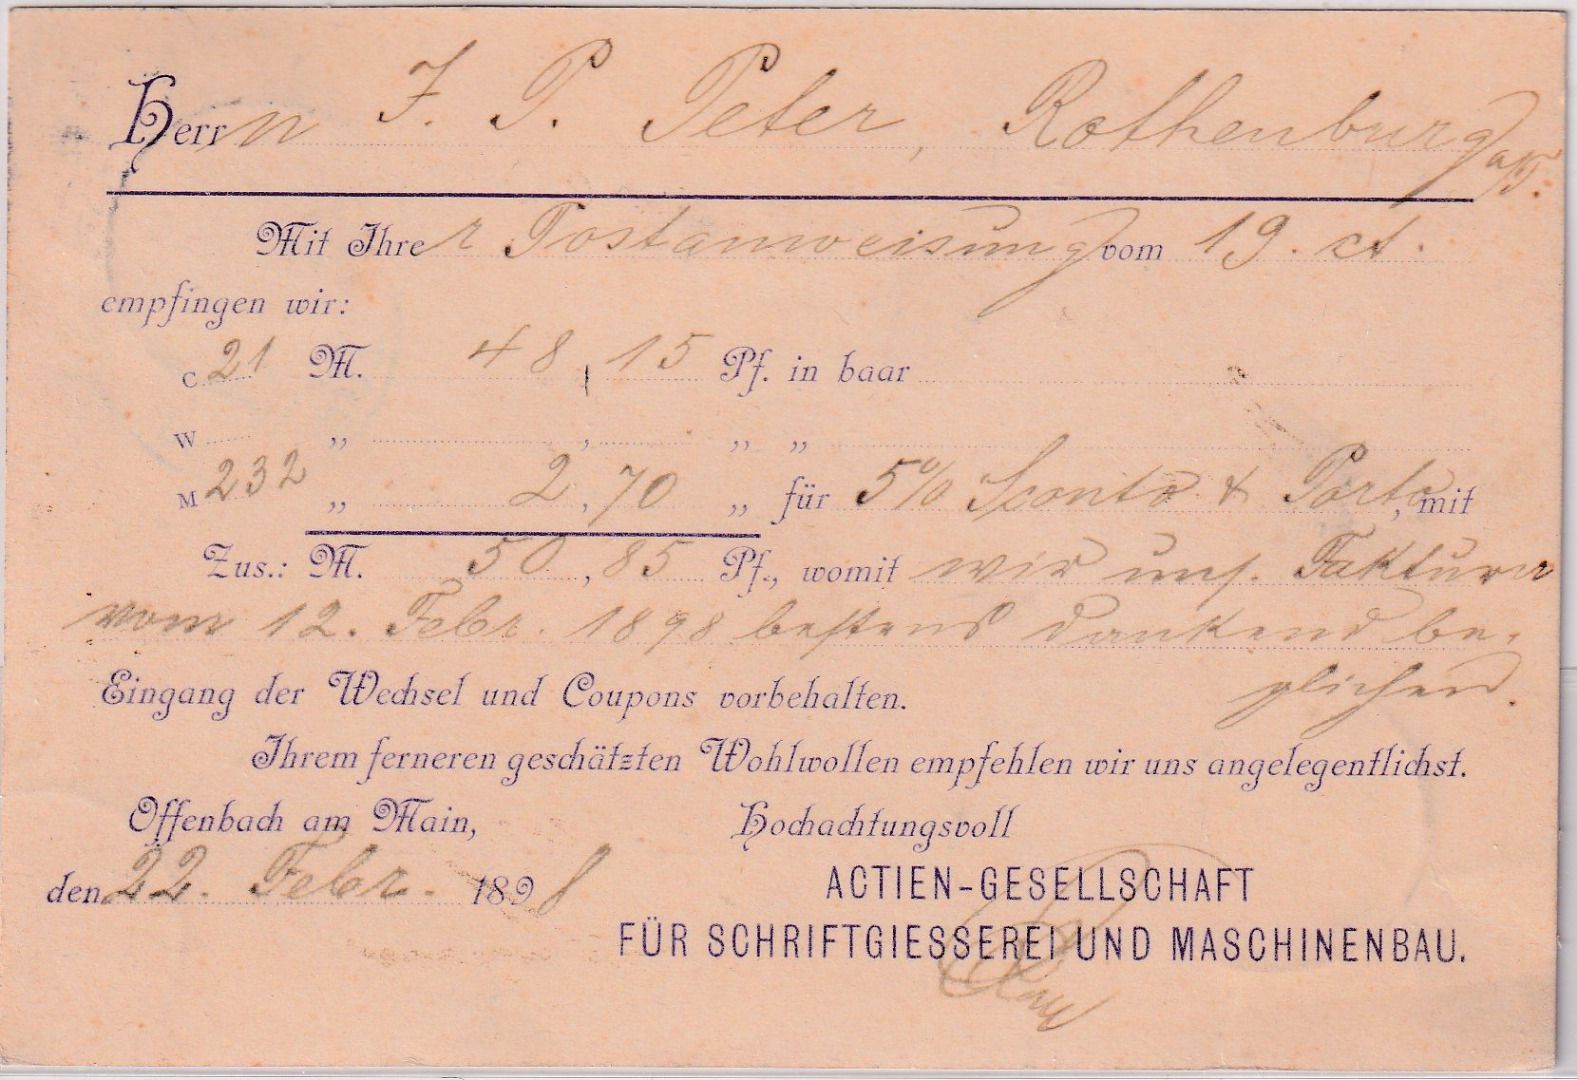 Herrn J. P. Peter, Rothenburg a/T.
Mit Ihrer Postanweisung vom 19. ct.
empfingen wir:
C 21 M. 48, 15 Pf. in baar
W „ , „ „
M 232 „ 2, 70 „ für 5% Sconto & Porto, mit
Zus.: M. 50, 85 Pf., womit wir uns. Faktura
vom 12. Febr. 1898 bestens dankend be-
glichen.
Eingang der Wechsel und Coupons vorbehalten.
Ihrem ferneren geschätzten Wohlwollen empfehlen wir uns angelegentlichst.
Offenbach am Main, Hochachtungsvoll
den 22. Febr. 1898
ACTIEN-GESELLSCHAFT
FÜR SCHRIFTGIESSEREI UND MASCHINENBAU.